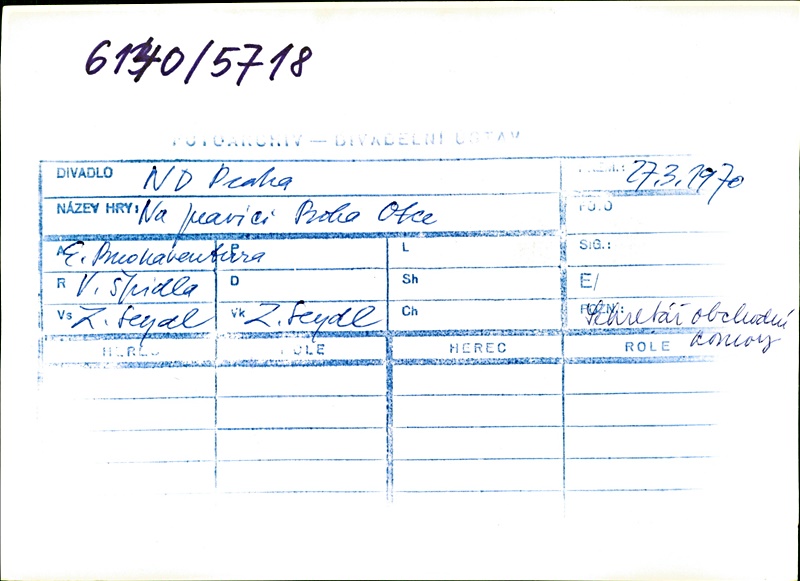 6140/5718
FOTOARCHIV — DIVADELNÍ ÚSTAV
DIVADLO ND Praha PREM.: 27.3.1970
NÁZEV HRY: Na pravici Boha Otce FOTO
A E. Buonaventura P L SIG.:
R V. Špidla D Sh E/
Vs Z. Seydl Vk Z. Seydl Ch POZN. Sekretář obchodní
komory
HEREC ROLE HEREC ROLE